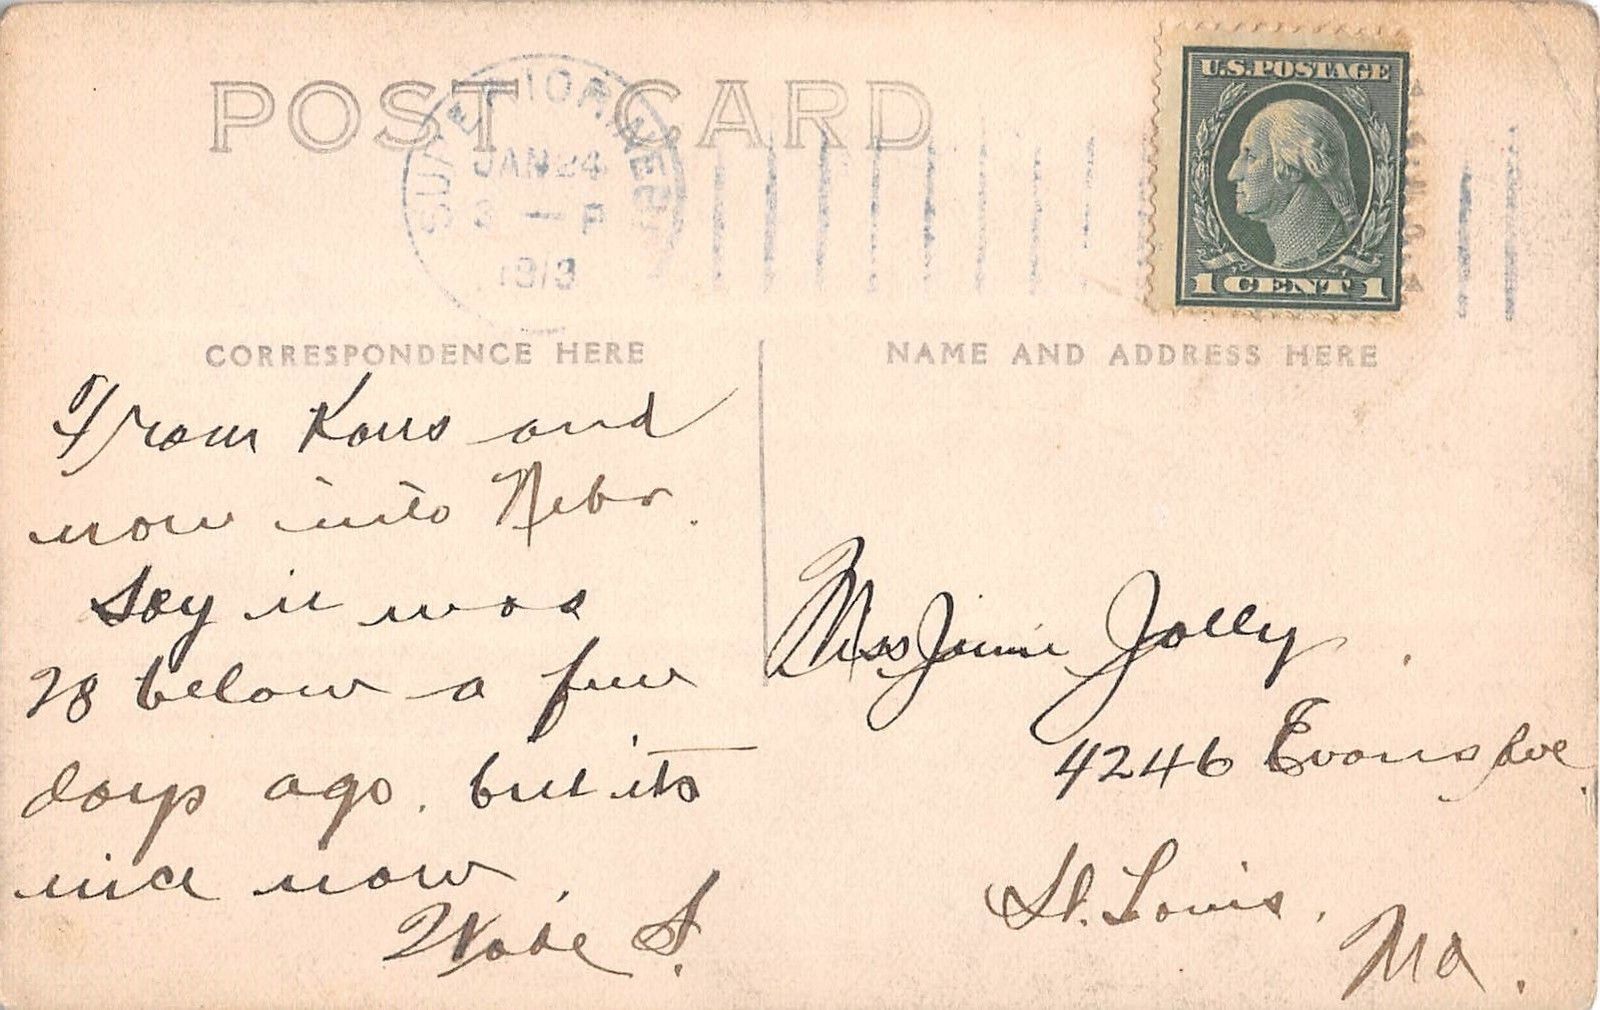 POST CARD
SUPERIOR, NEBR.
JAN 24
3 — P
1913
U.S. POSTAGE
1 CENT 1
CORRESPONDENCE HERE
NAME AND ADDRESS HERE
From Kans and
now into Nebr.
Say it was
28 below a few
days ago. but its
nice now.
Wade S.
Miss Jimie Jolly.
4246 Evans Ave.
St. Louis.
Mo.